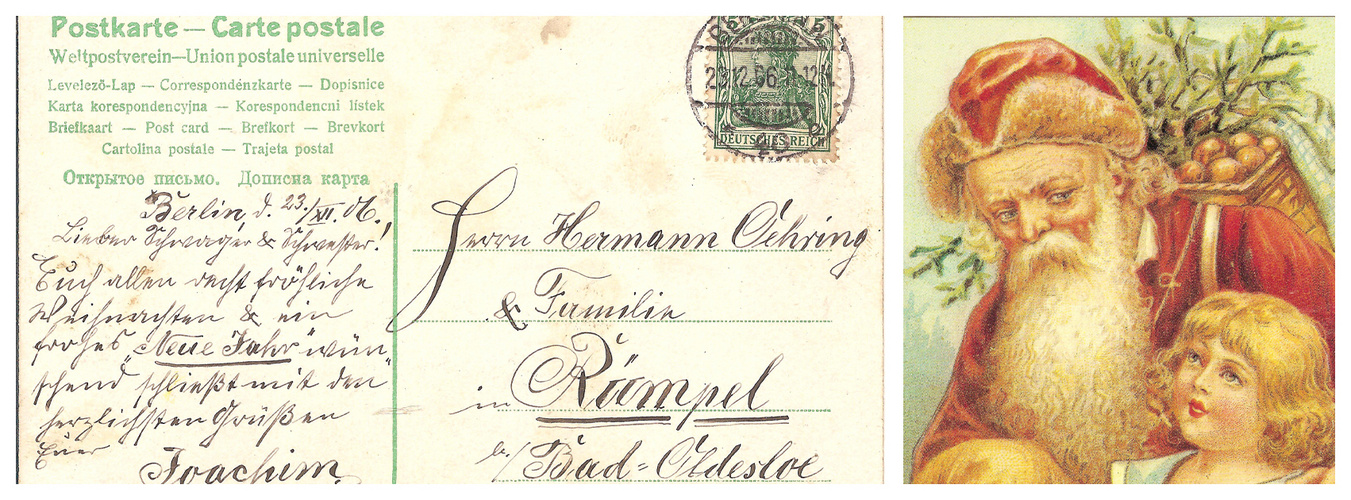 Postkarte — Carte postale
Weltpostverein — Union postale universelle
Levelező-Lap — Correspondénzkarte — Dopisnice
Karta korespondencyjna — Korespondencni lístek
Briefkaart — Post card — Brefkort — Brevkort
Cartolina postale — Trajeta postal
Открытое письмо. Дописна карта
Berlin, d. 23./XII. 06.
Lieber Schwager & Schwester!
Euch allen recht fröhliche
Weihnachten & ein
frohes "Neue Jahr" wün-
schend schließt mit den
herzlichsten Grüßen
Euer
Joachim.
5 5
12.06
DEUTSCHES REICH
Herrn Hermann Oehring
& Familie
in Rümpel
b./ Bad=Oldesloe